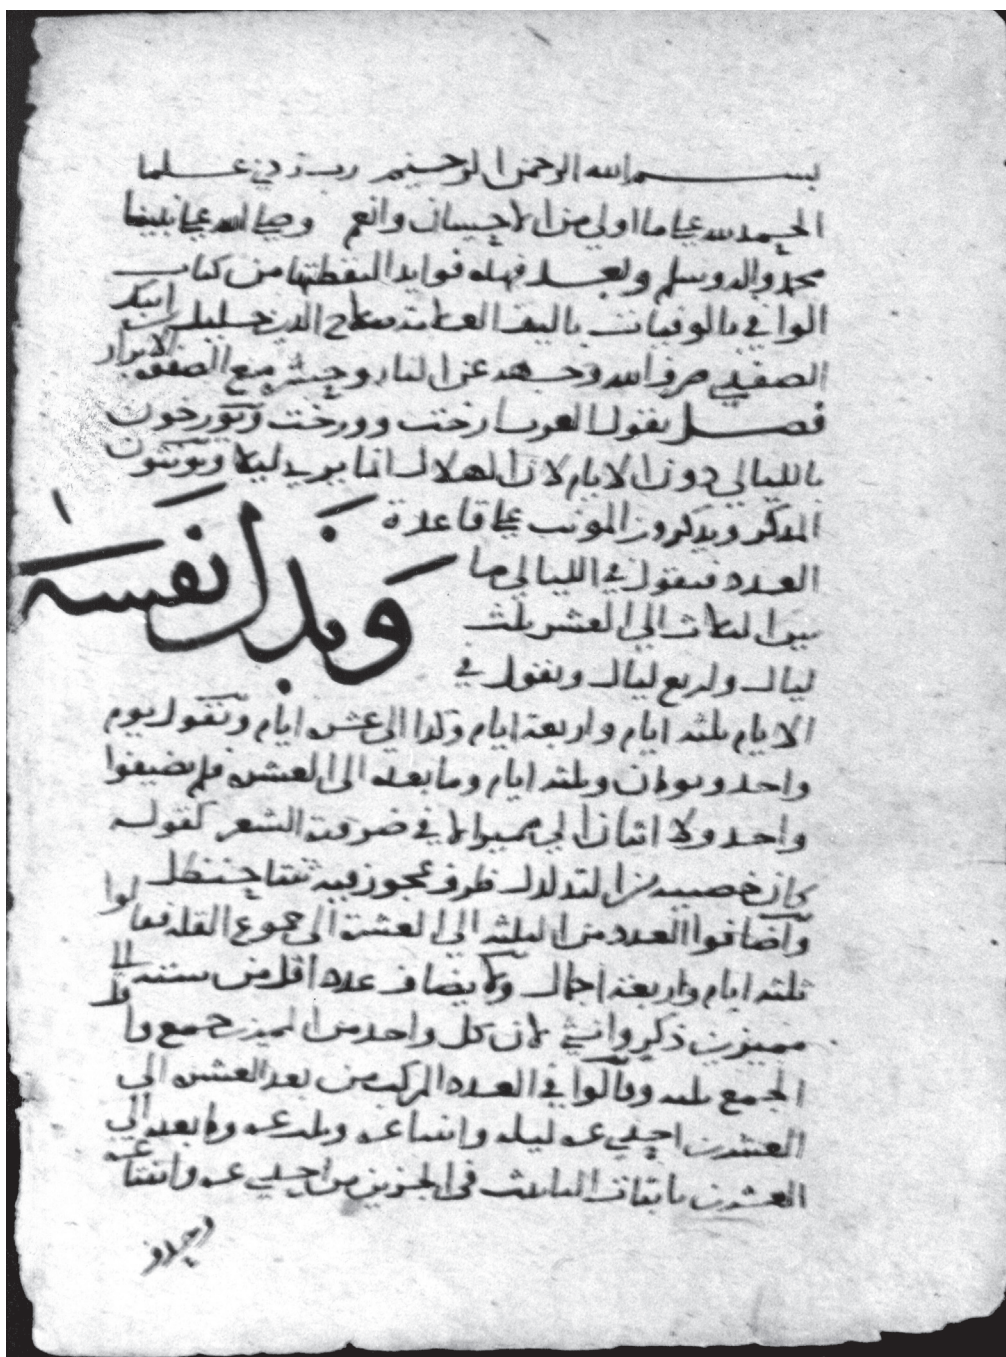 بسم الله الرحمن الرحيم رب زدني علما
الحمد لله على ما اولى من الاحسان وانعم وصلى الله على نبينا
محمد واله وسلم وبعد فهذه فوايد التقطتها من كتاب
الوافي بالوفيات تاليف العلامة صلاح الدين خليل بن ايبك
الصفدي صرف الله وجهه عن النار وحشره مع الابرار
فصل يقول العرب ارخت وورخت ويورخون
بالليالي دون الايام لان الهلال انما يرى ليلا ويونثون
المذكر ويذكرون المونث على قاعدة
العدد فيقول في الليالي ما
بين الثلاث الى العشر ثلث
ليال واربع ليال ويقول في
وبذل نفسه
الايام ثلثة ايام واربعة ايام وكذا الى عشرة ايام وتقول يوم
واحد ويومان وثلثة ايام وما بعده الى العشرة فلم يضيفوا
واحد ولا اثنان الى مميز الا في ضرورة الشعر كقوله
كان خصييه من التدلدل ظرف عجوز فيه ثنتا حنظل
واضافوا العدد من الثلثة الى العشرة الى جموع القلة فقالوا
ثلثة ايام واربعة اجمال ولا يضاف عدد اقل من ستة الى
مميزين ذكر وانثى لان كل واحد من المميزين جمع واقل
الجمع ثلثة وقالوا في العدد المركب من بعد العشرة الى
العشرين احدى عشرة ليلة واثنتا عشرة وثلث عشرة وما بعده الى
العشرين باثبات التانيث في الجزئين من احدى عشرة واثنتا عشرة
وحذف